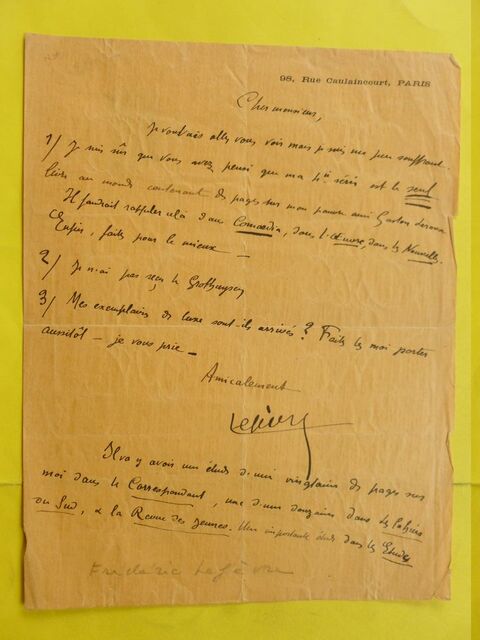 98, Rue Caulaincourt, PARIS
Cher monsieur,
Je voudrais aller vous voir mais je suis un peu souffrant.
1/ Je suis sûr que vous avez pensé que ma 4me série est le seul
livre au monde contenant des pages sur mon pauvre ami Gaston Leroux
Il faudrait rappeler cela dans Comoedia, dans l'Œuvre, dans les Nouvelles.
Enfin, faites pour le mieux —
2/ Je n'ai pas reçu le Groethuysen
3/ Mes exemplaires de luxe sont-ils arrivés ? Faites les moi porter
aussitôt — je vous prie —
Amicalement
Lefèvre
Il va y avoir une étude d'une vingtaine de pages sur
moi dans le Correspondant, une d'une douzaine dans les Cahiers
du Sud, & la Revue des Jeunes. Une importante étude dans les Etudes
Frédéric Lefèvre